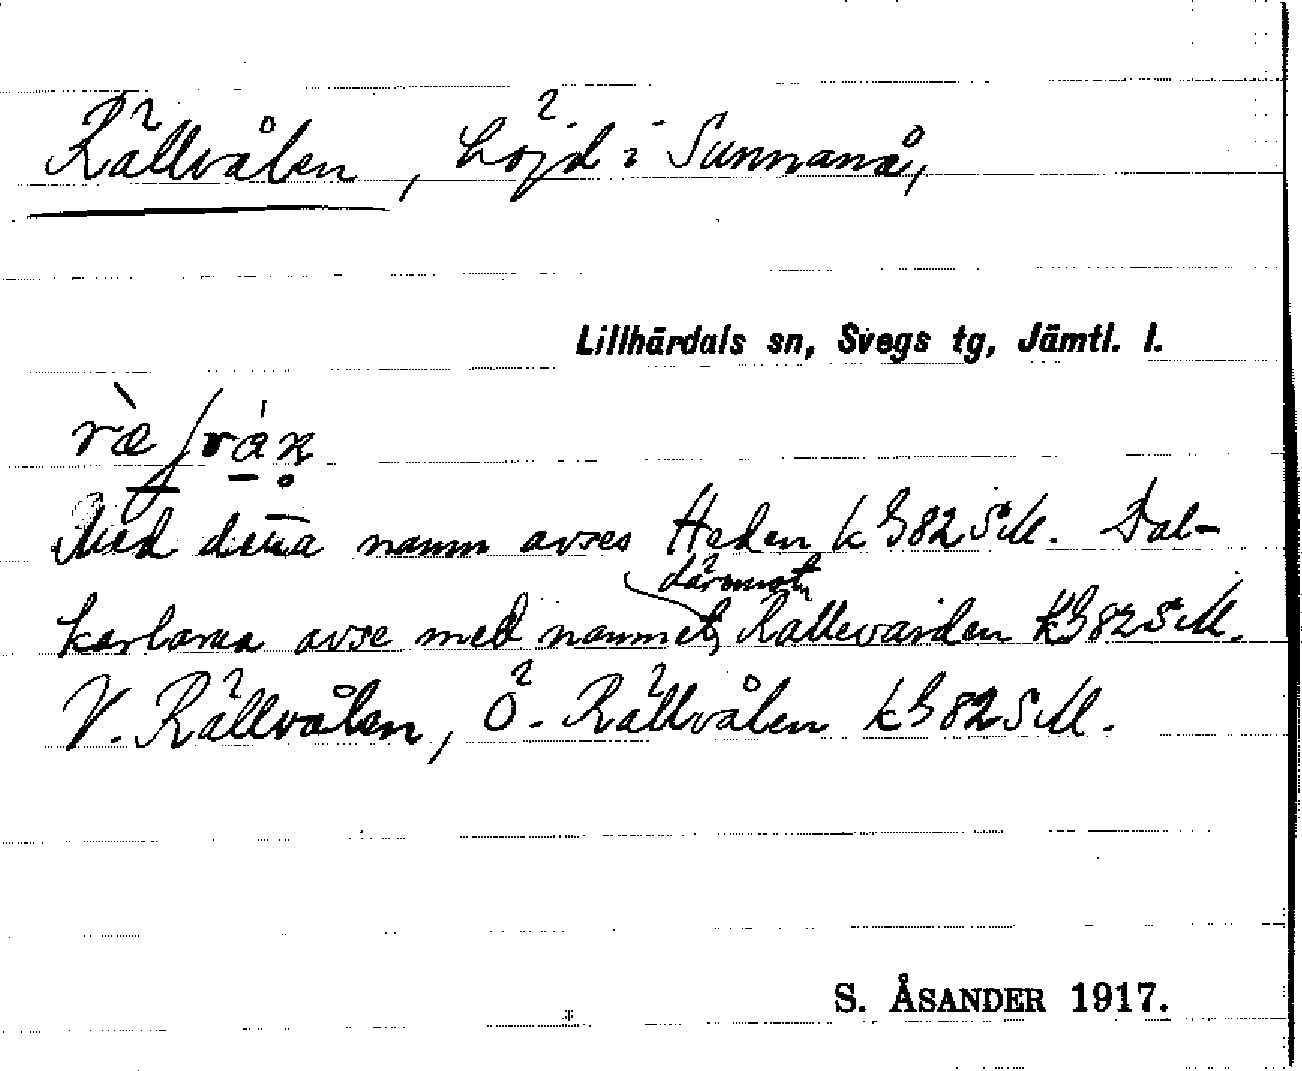 Rällvålen, Löjd i Sunnanå,
Lillhärdals sn, Svegs tg, Jämtl. l.
Med denna namn avses Heden k G 82 SM. Dal-
karlarna avse med namnet däremot Rallevarden k G 82 SM.
V. Rällvålen, Ö. Rällvålen k G 82 SM.
S. ÅSANDER 1917.